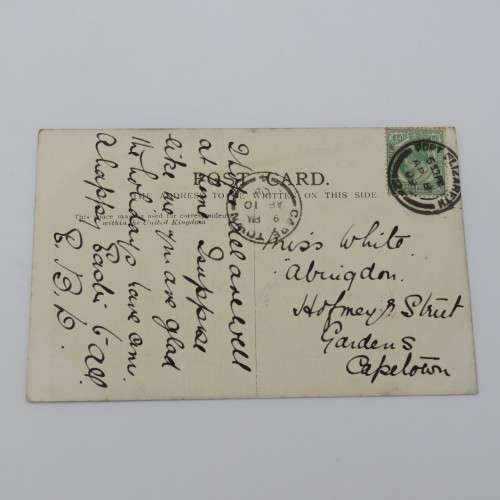 POST CARD.
THE ADDRESS TO BE WRITTEN ON THIS SIDE.
This place may be used for correspondence
within the United Kingdom
I hope all are well
at home I suppose
like me you are glad
the holidays have come.
A happy Easter to all.
Miss White
Abingdon.
Hofmeyr Street
Gardens
Capetown
CAPE TOWN
9
PM
AP
10
PORT ELIZABETH
AP 8